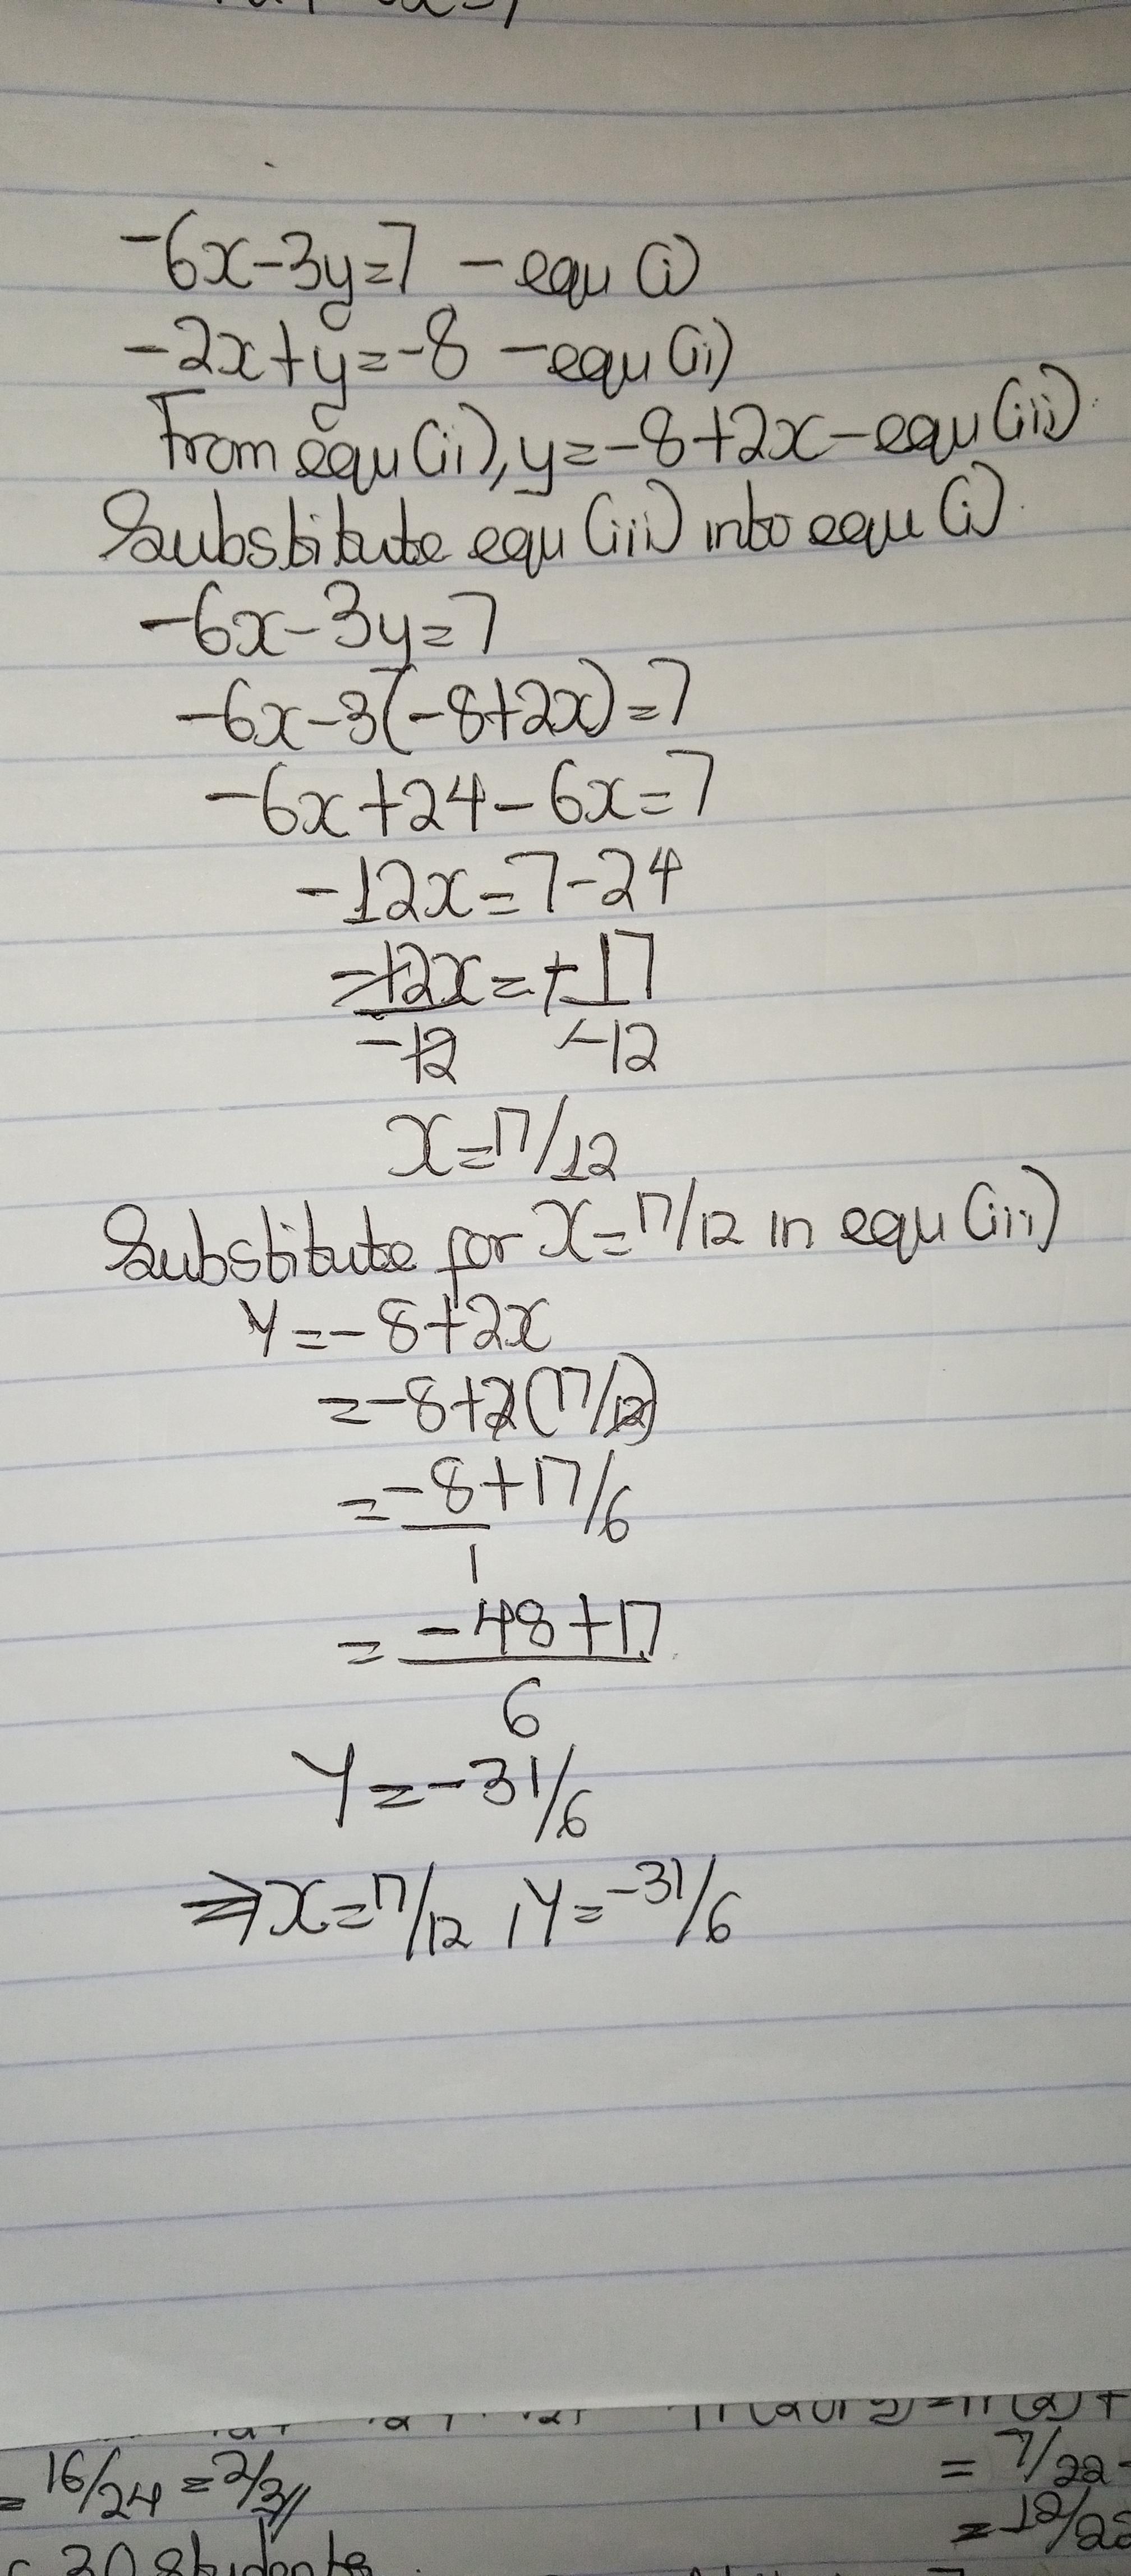 -6x-3y=7 - equ (i)
-2x+y=-8 - equ (ii)
From equ (ii), y=-8+2x - equ (iii)
Substitute equ (iii) into equ (i)
-6x-3y=7
-6x-3(-8+2x)=7
-6x+24-6x=7
-12x=7-24
-12x=-17
-12 -12
x=17/12
Substitute for x=17/12 in equ (iii)
y=-8+2x
=-8+2(17/12)
=-8+17/6
1
=-48+17
6
Y=-31/6
⇒x=17/12, Y=-31/6
=16/24=2/3//
=7/22
30 students